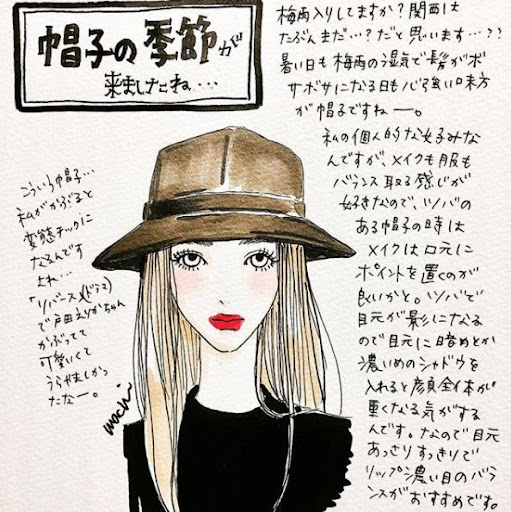 帽子の季節が
来ましたね…
梅雨入りしてますか？関西は
たぶんまだ…？だと思います…？？
暑い日も梅雨の湿気で髪がボ
サボサになる日も心強い味方
が帽子ですねー。
私の個人的な好みな
んですが、メイクも服も
バランス取る感じが
好きなので、ツバの
ある帽子の時は
メイクは口元に
ポイントを置くのが
良いかと。ツバで
目元が影になる
ので目元に暗めとか
濃いめのシャドウを
入れると顔全体が
重くなる気がする
んです。なので目元
あっさりすっきりで
リップ濃い目のバラ
ンスがおすすめです。
こういう帽子…
私がかぶると
変態チックに
なるんです
よね…
「リバース」(ドラマ)
で戸田えりかちゃん
がかぶってて
可愛いくて
うらやましかっ
たなー。
machi